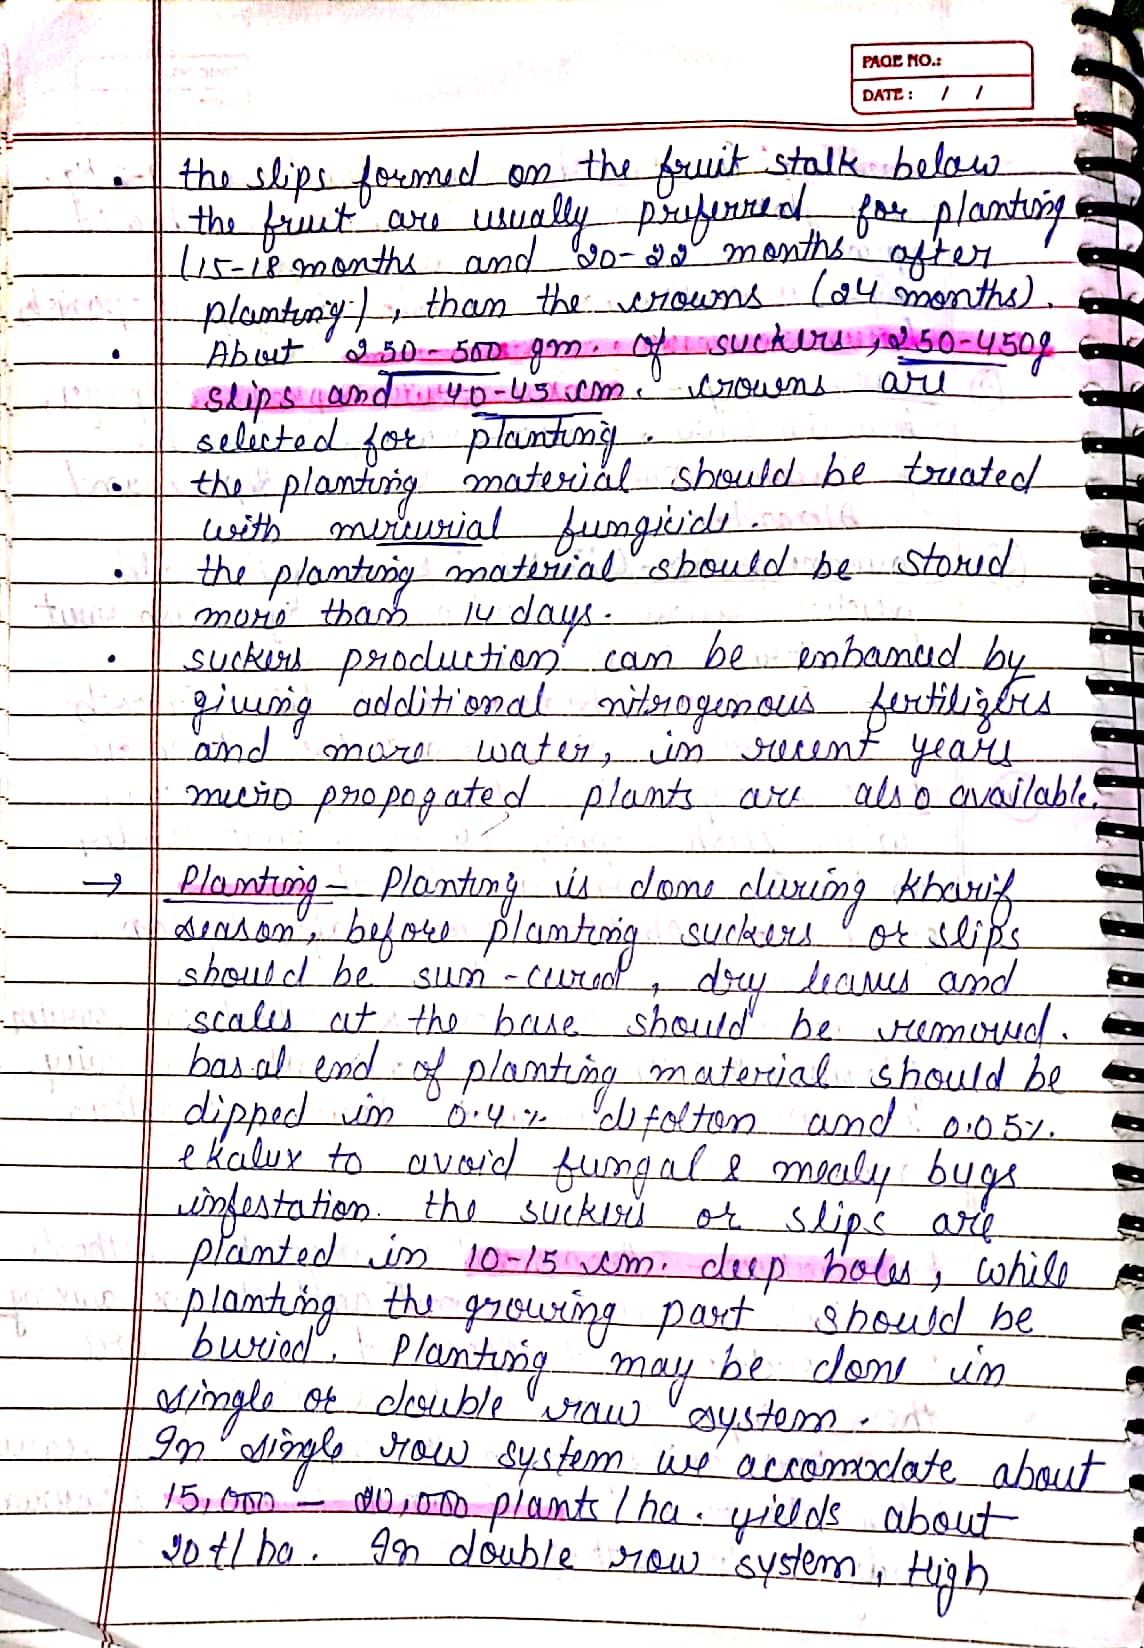 PAGE NO.:
DATE: / /
• the slips formed on the fruit stalk below
the fruit are usually preferred for planting
(15-18 months and 20-22 months after
planting), than the crowns (24 months).
• About 250-500 gm. of suckers, 250-450g
slips and 40-45 cm. crowns are
selected for planting.
• the planting material should be treated
with mercurial fungicide.
• the planting material should be stored
more than 14 days.
• suckers production can be enhanced by
giving additional nitrogenous fertilizers
and more water, in recent years
micro propogated plants are also available.
→ Planting - Planting is done during Kharif
season, before planting suckers or slips
should be sun-cured, dry leaves and
scales at the base should be removed.
basal end of planting material should be
dipped in 0.4% difoltan and 0.05%.
ekalux to avoid fungal & mealy bugs
infestation. the suckers or slips are
planted in 10-15 cm. deep holes, while
planting the growing part should be
buried. Planting may be done in
single or double raw system.
In single row system we accomodate about
15,000 - 20,000 plants/ha. yields about
20t/ha. In double row system, High